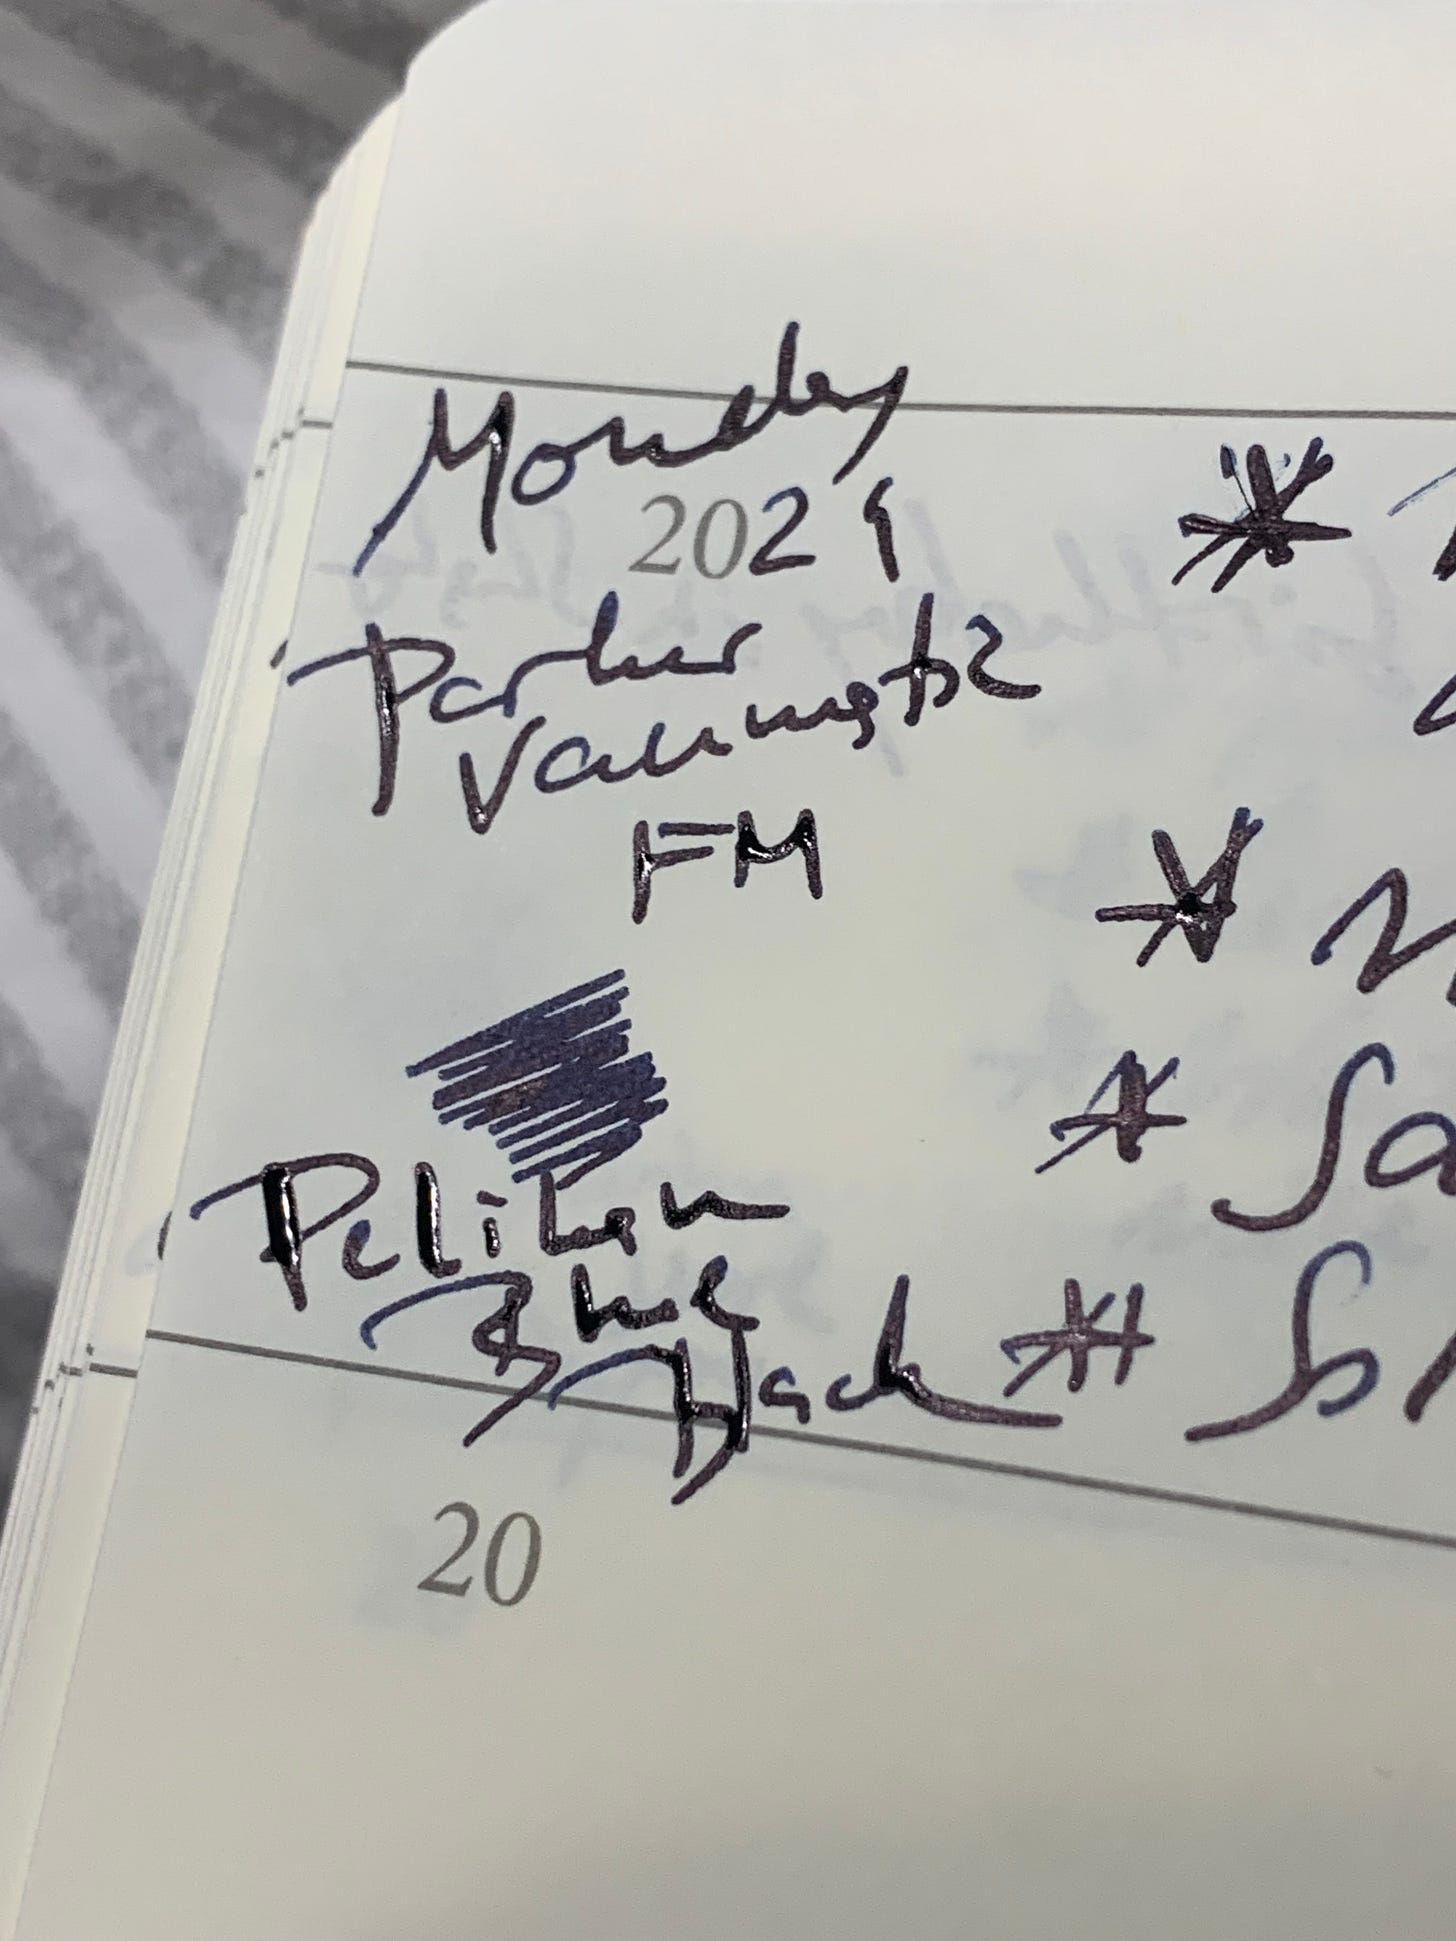 Monday
2021
Parker
Vacumatic
FM
Pelikan
Blue
Black
20